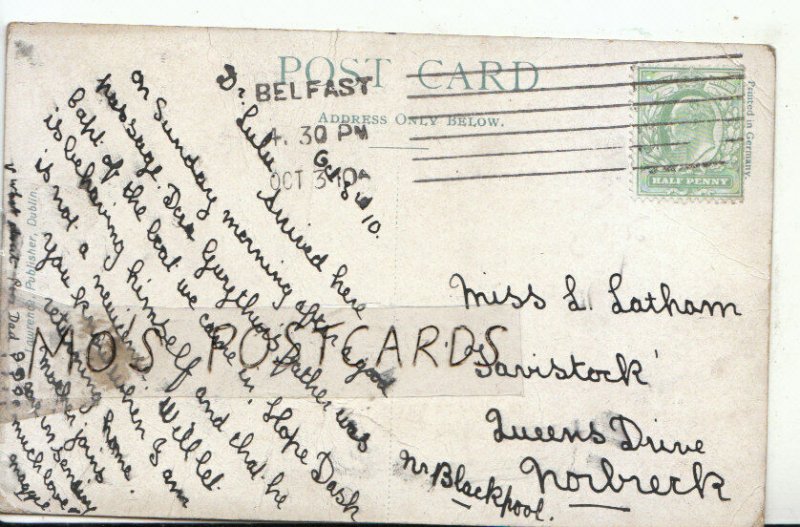 POST CARD
ADDRESS ONLY BELOW.
BELFAST
4. 30 PM
OCT 3 10
HALF PENNY
Printed in Germany.
Lawrence, Publisher, Dublin.
Dr. Lulu
Oct 3 10.
Arrived here
on Sunday morning after a good
passage. Dear father was
Capt of the boat we came in. Hope Dash
is behaving himself and that he
is not a Will let
you know when I am
returning home.
Mother joins
in sending
much love
MO'S POSTCARDS
Miss L. Latham
'Tavistock'
Queens Drive
Norbreck
Nr Blackpool.